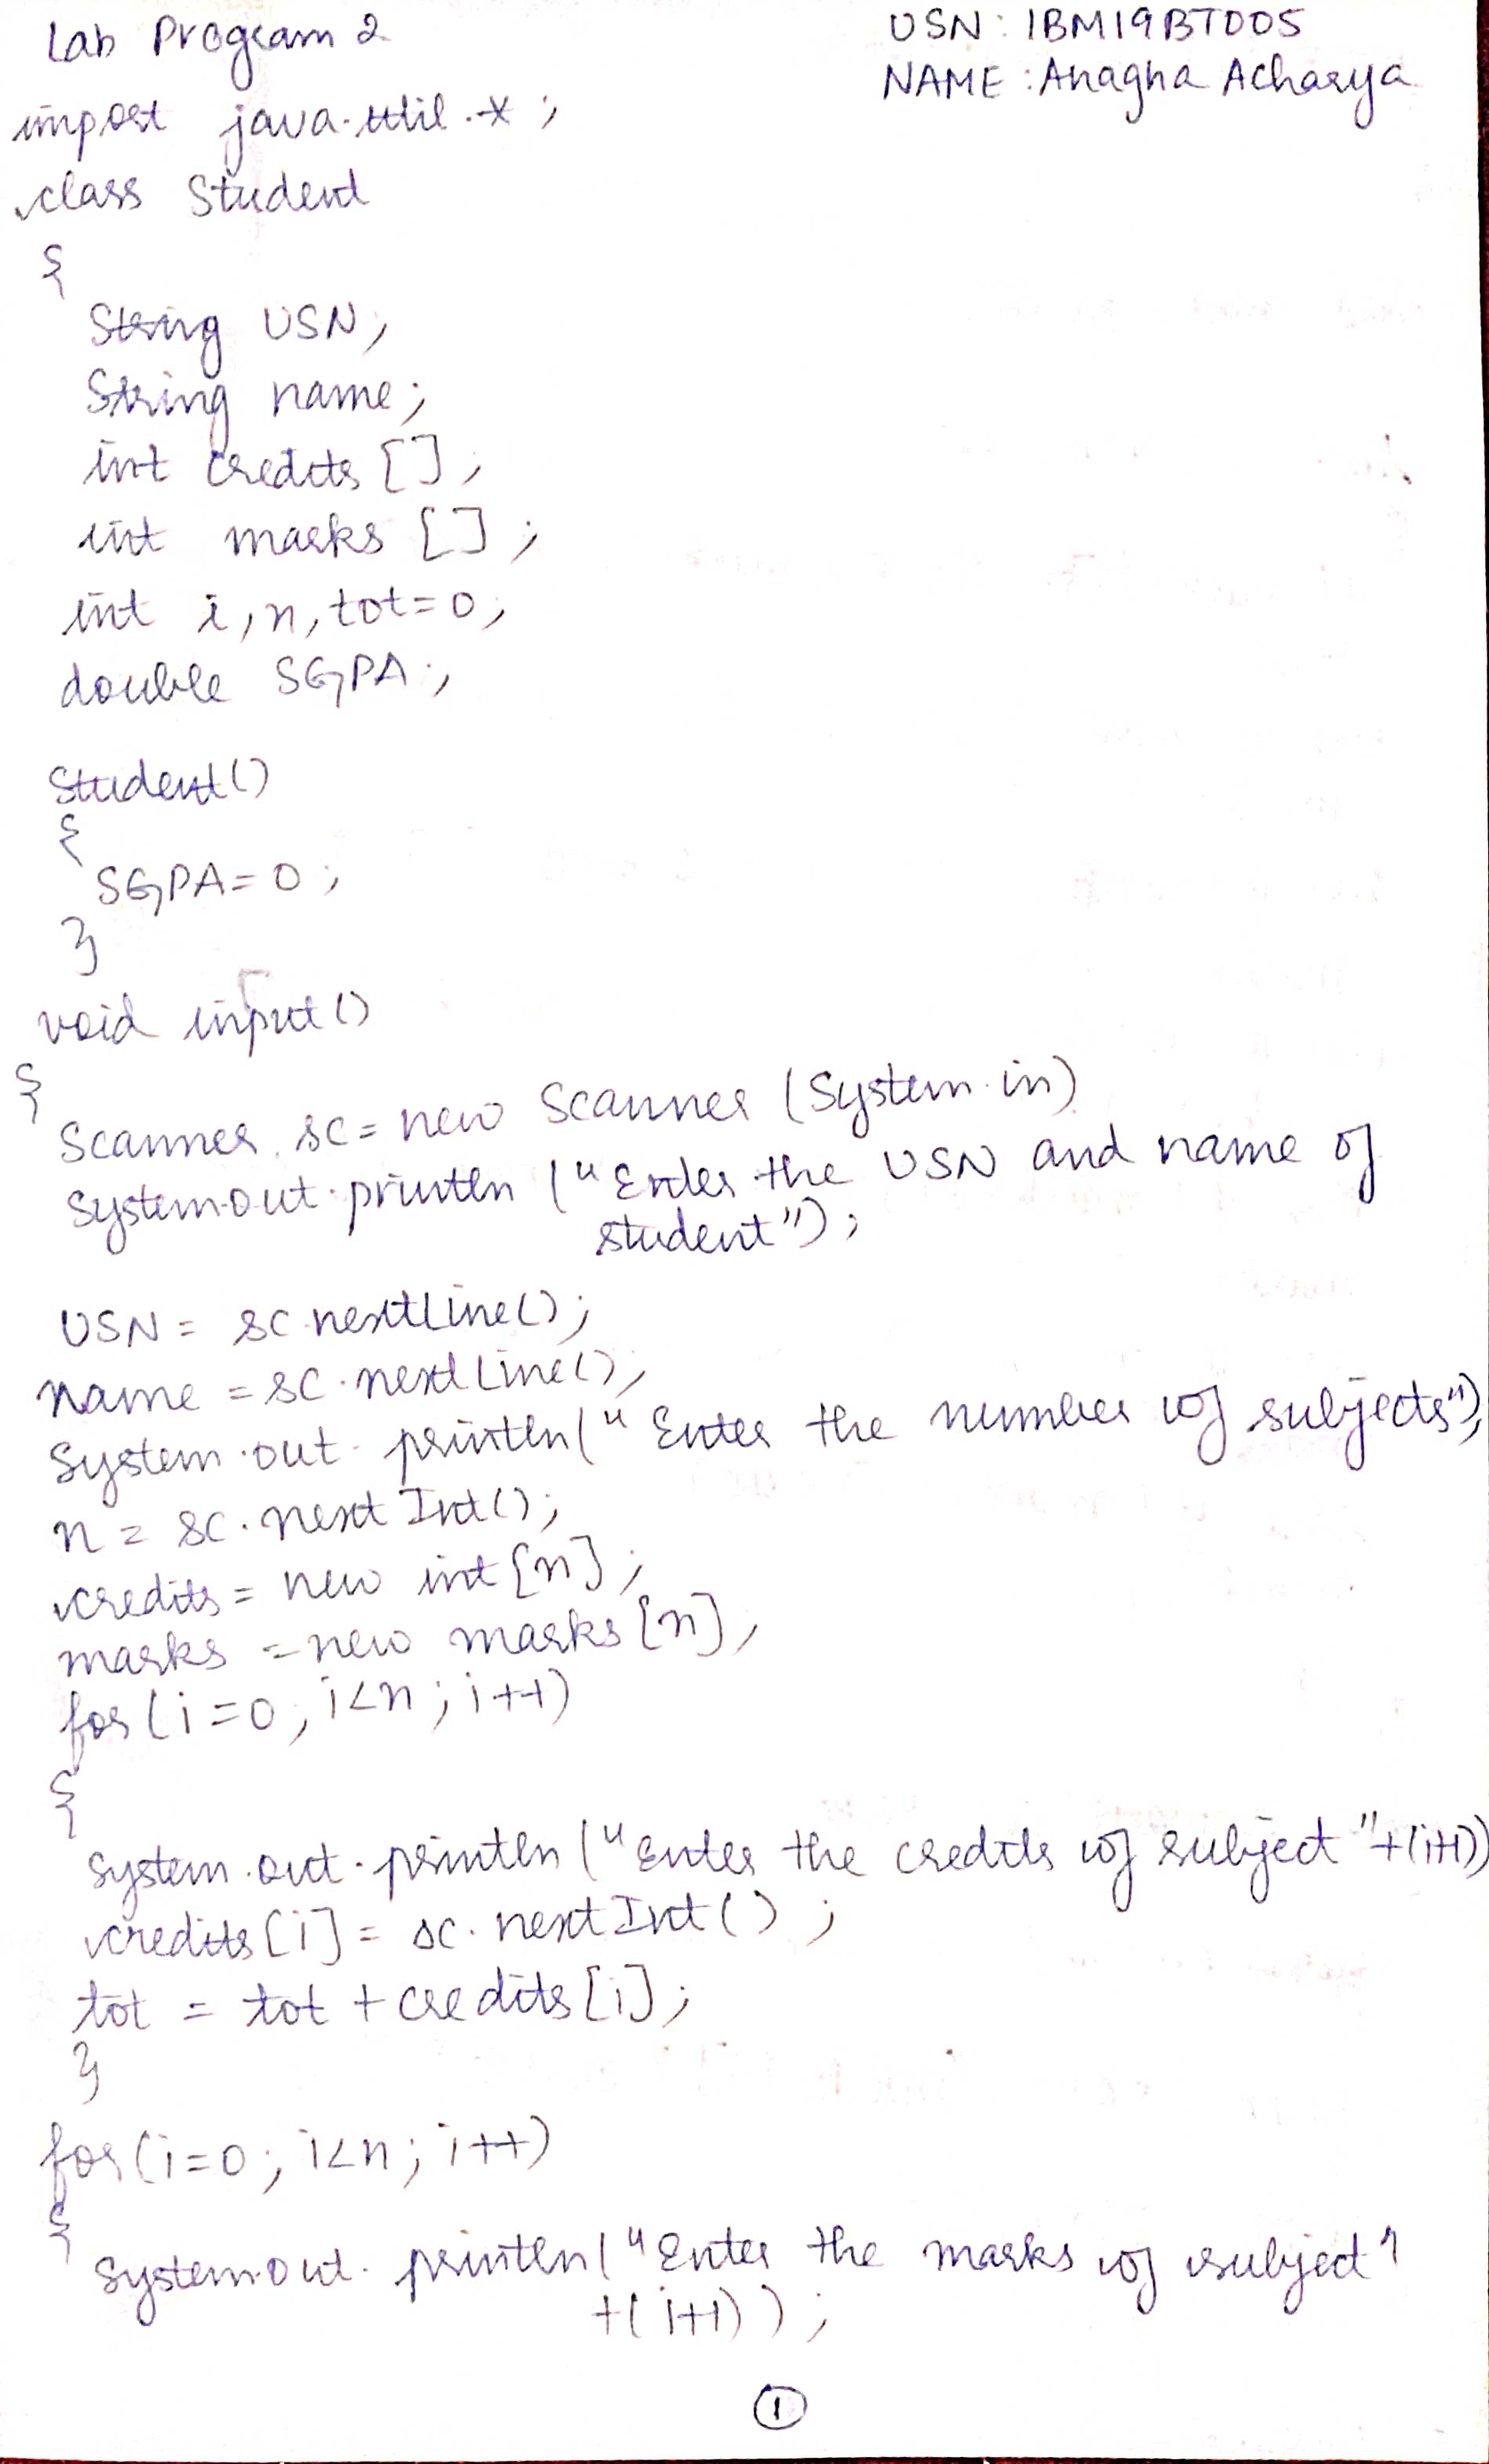 Lab Program 2
USN: 1BM19BT005
NAME: Anagha Acharya
import java.util.*;
class Student
{
String USN;
String name;
int credits [];
int marks [];
int i,n,tot=0;
double SGPA;
Student()
{
SGPA=0;
}
void input()
{
Scanner sc= new Scanner (System.in)
System.out.println ("Enter the USN and name of
student");
USN = sc.nextLine();
name =sc.nextLine();
System.out.println("Enter the number of subjects");
n = sc.nextInt();
credits = new int [n];
marks = new marks [n];
for(i=0; i<n; i++)
{
System.out.println ("Enter the credits of subject "+(i+1))
credits[i] = sc.nextInt();
tot = tot + credits[i];
}
for(i=0; i<n; i++)
{
System.out.println("Enter the marks of subject"
+(i+1));
1